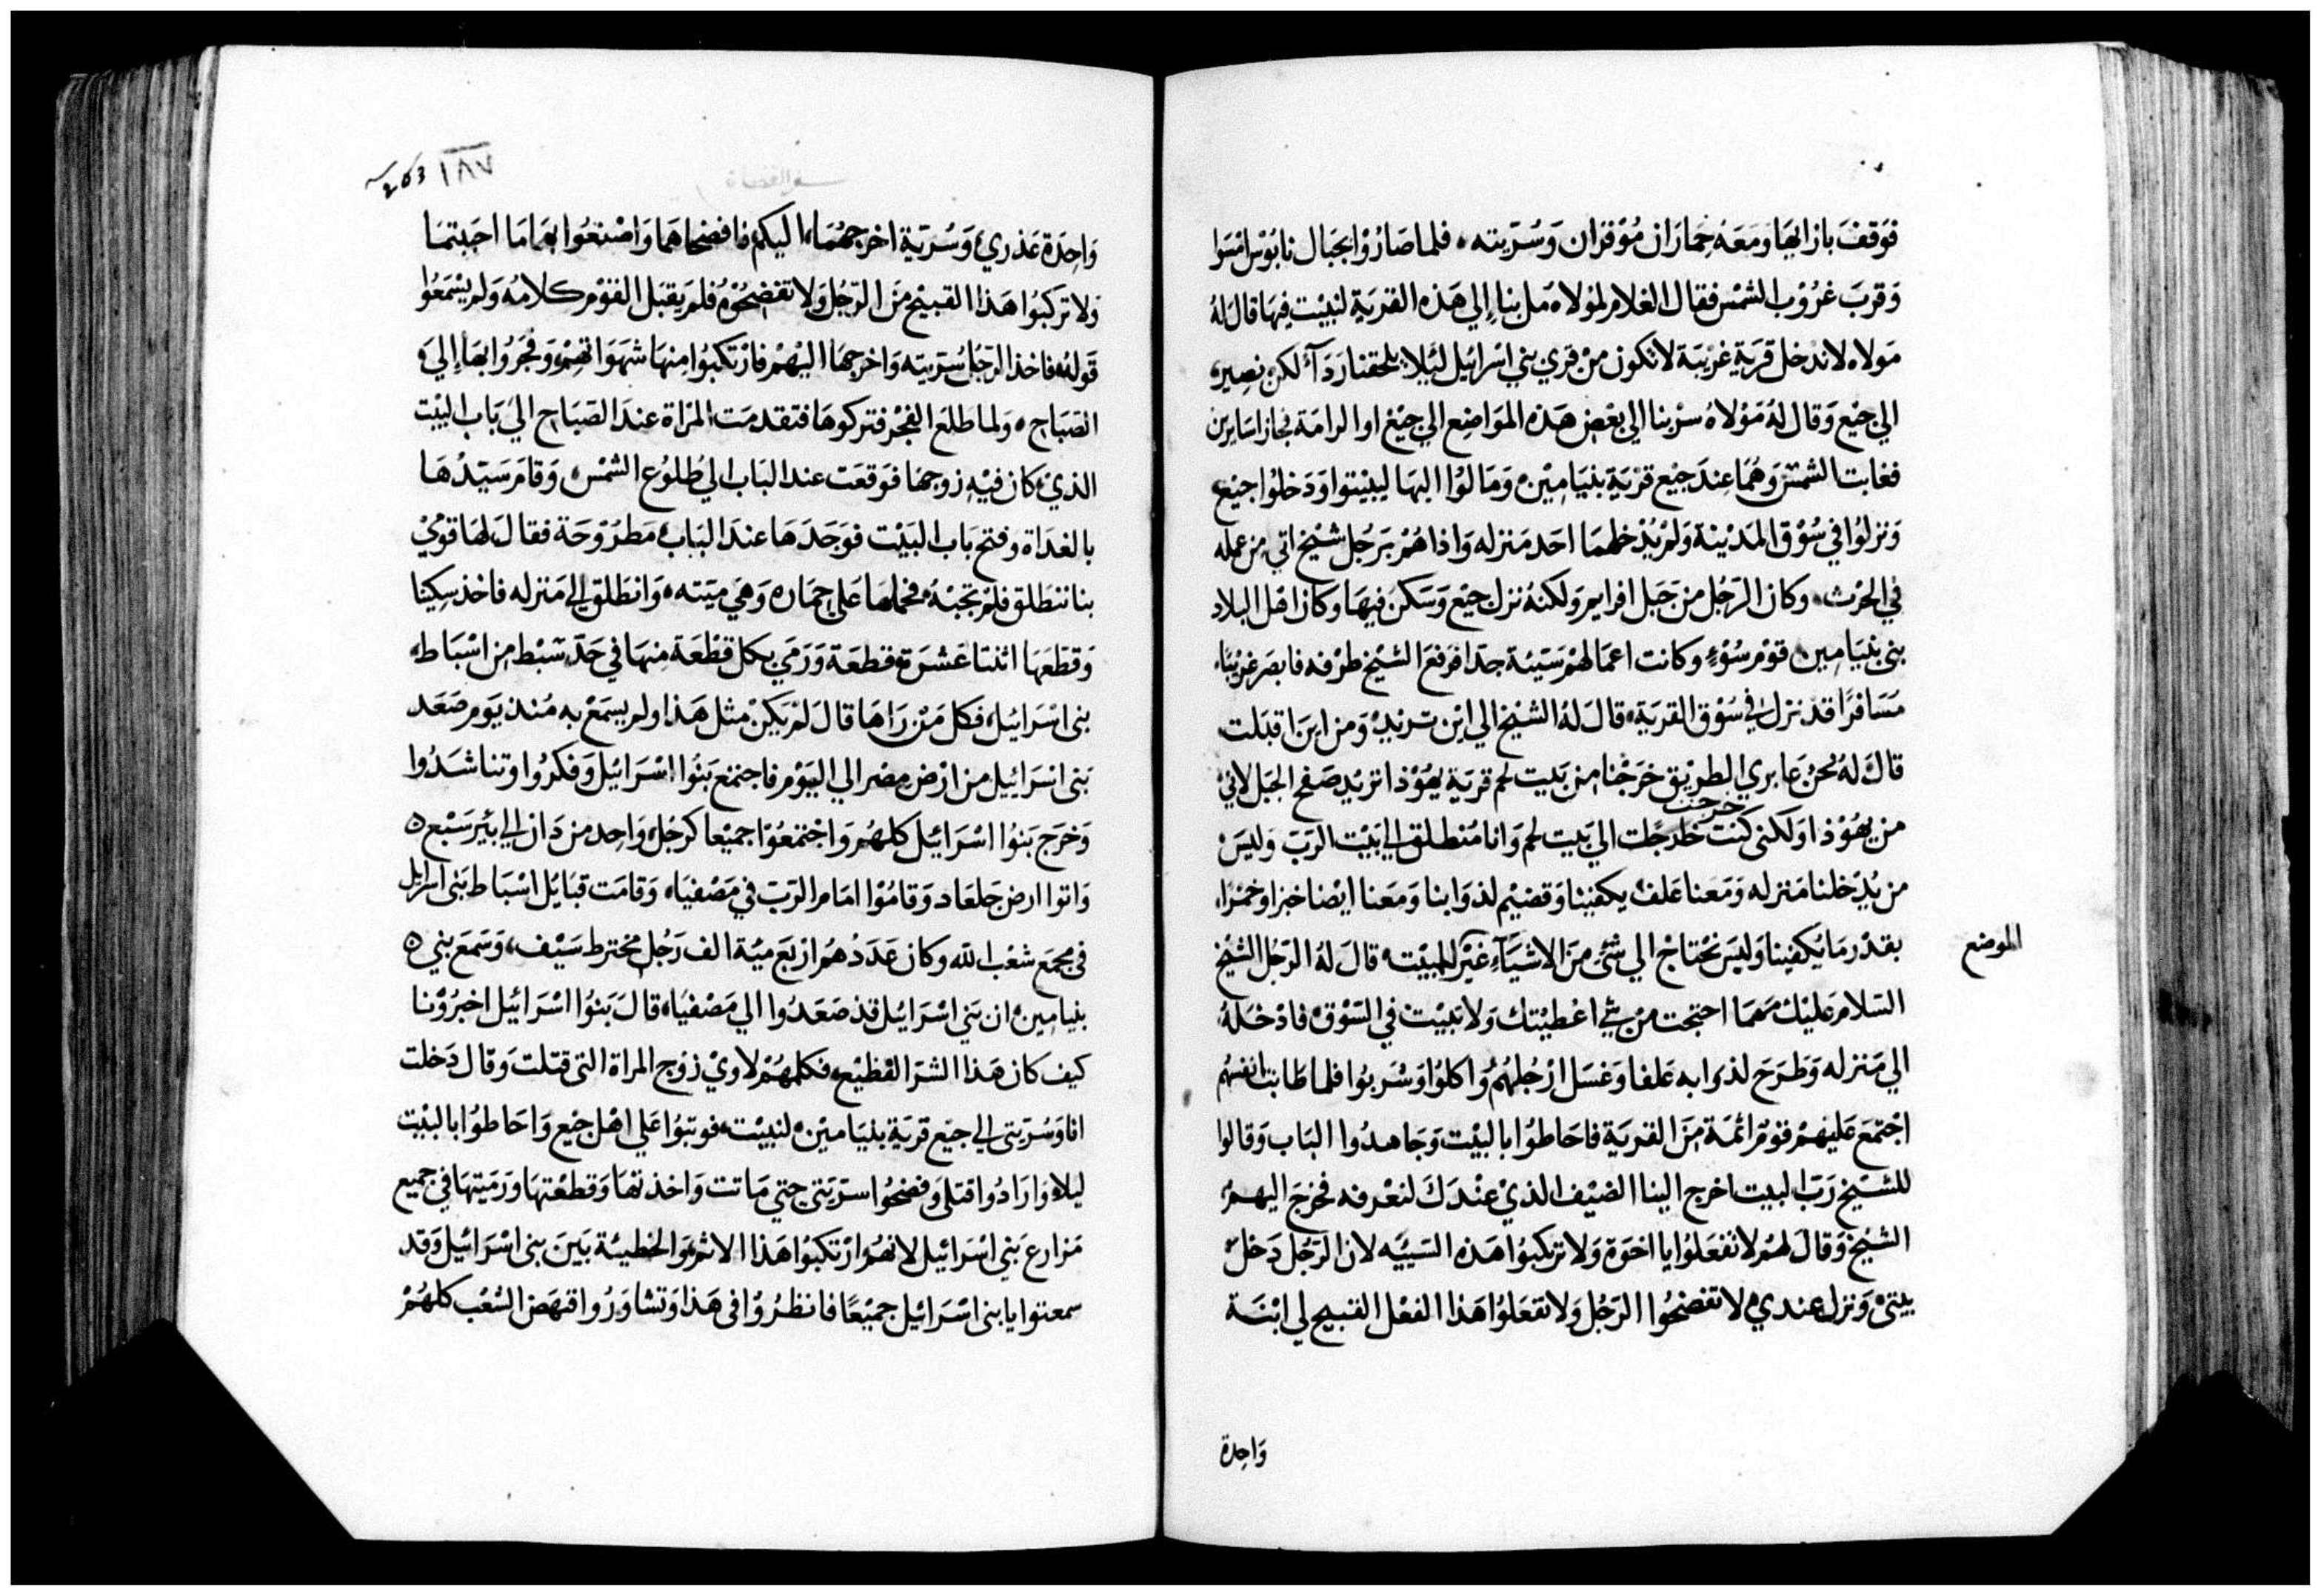 فوقف بازايها ومعه حماران موقران وسريته، فلما صاروا بجبال نابوس امسوا
وقرب غروب الشمس فقال الغلام لمولاه مل بنا إلي هذه القرية لنبيت فيها قال له
مولاه لا ندخل قرية غريبة لا تكون من قري بني اسرائيل ليلا يلحقنا ردآ لكن نصير
الي جبع وقال له مولاه سر بنا الي بعض هذه المواضع الي جبع او الرامة فجازا سايرين
فغابت الشمس وهما عند جبع قرية بنيامين ومالوا اليها ليبيتوا ودخلوا جبع
ونزلوا في سوق المدينة ولم يدخلهما احد منزله واذا هم برجل شيخ اتي من عمله
في الحرث وكان الرجل من جبل افرايم ولكنه نزل جبع وسكن فيها وكان اهل البلاد
بني بنيامين قوم سوء وكانت اعمالهم سيئة جدا فرفع الشيخ طرفه فابصر غريبا
مسافرا قد نزل في سوق القرية قال له الشيخ الي اين تريد ومن اين اقبلت
قال له نحن عابري الطريق خرجنا من بيت لحم قرية يهوذا نريد صفح الجبل لاني
خرجت
من يهوذا ولكني كنت الي بيت لحم وانا منطلق الي بيت الرب وليس
من يدخلنا منزله ومعنا علف يكفينا وقضيم لدوابنا ومعنا ايضا خبزا وخمرا
بقدر ما يكفينا وليس نحتاج الي شئ من الاشيآء غير المبيت قال له الرجل الشيخ
الموضع
السلام عليك مهما احتجت من شي اعطيتك ولا تبيت في السوق فادخله
الي منزله وطرح لدوابه علفا وغسل ارجلهم واكلوا وشربوا فلما طابت انفسهم
اجتمع عليهم قوم اثمة من القرية فاحاطوا بالبيت وجاهدوا الباب وقالوا
للشيخ رب البيت اخرج الينا الضيف الذي عندك لنعرفه فخرج اليهم
الشيخ وقال لهم لا تفعلوا يا اخوة ولا تركبوا هذه السيئه لان الرجل دخل
بيتي ونزل عندي لا تفضحوا الرجل ولا تفعلوا هذا الفعل القبيح لي ابنة
واحدة
سفر القضاة
263 ١٨٧
واحدة عذري وسرية اخرجهما اليكم فافضحاهما واصنعوا بهما ما احببتما
ولا تركبوا هذا القبيح من الرجل ولا تفضحوه فلم يقبل القوم كلامه ولم يسمعوا
قوله فاخذ الرجل سريته واخرجها اليهم فارتكبوا منها شهواتهم وفجروا بها إلي
الصباح ولما طلع الفجر فتركوها فتقدمت المراة عند الصباح الي باب البيت
الذي كان فيه زوجها فوقعت عند الباب الي طلوع الشمس وقام سيدها
بالغداة وفتح باب البيت فوجدها عند الباب مطروحة فقال لها قومي
بنا ننطلق فلم تجبه فحملها علي حماره وهي ميته وانطلق الي منزله فاخذ سكينا
وقطعها اثنتا عشرة قطعة ورمي بكل قطعة منها في حد سبط من اسباط
بني اسرائيل فكل من راها قال لم يكن مثل هذا ولم يسمع به منذ يوم صعد
بني اسرائيل من ارض مصر الي اليوم فاجتمع بنوا اسرائيل وفكروا وتناشدوا
وخرج بنوا اسرائيل كلهم واجتمعوا جميعا كرجل واحد من دان الي بير سبع
واتوا ارض جلعاد وقاموا امام الرب في مصفيا، وقامت قبايل اسباط بني اسرايل
في مجمع شعب الله وكان عددهم اربع مية الف رجل مخترط سيف، وسمع بني
بنيامين ان بني اسرائيل قد صعدوا الي مصفيا قال بنوا اسرائيل اخبرونا
كيف كان هذا الشر الفظيع فكلمهم لاوي زوج المراة التي قتلت وقال دخلت
انا وسريتي الي جبع قرية بنيامين لنبيت فوثبوا علي اهل جبع واحاطوا بالبيت
ليلا وارادوا قتلي وفضحوا سريتي حتي ماتت واخذتها وقطعتها ورميتها في جميع
مزارع بني اسرائيل لانهم ارتكبوا هذا الاثم والخطيئة بين بني اسرائيل وقد
سمعتوا يا بني اسرائيل جميعا فانظروا في هذا وتشاوروا فنهض الشعب كلهم